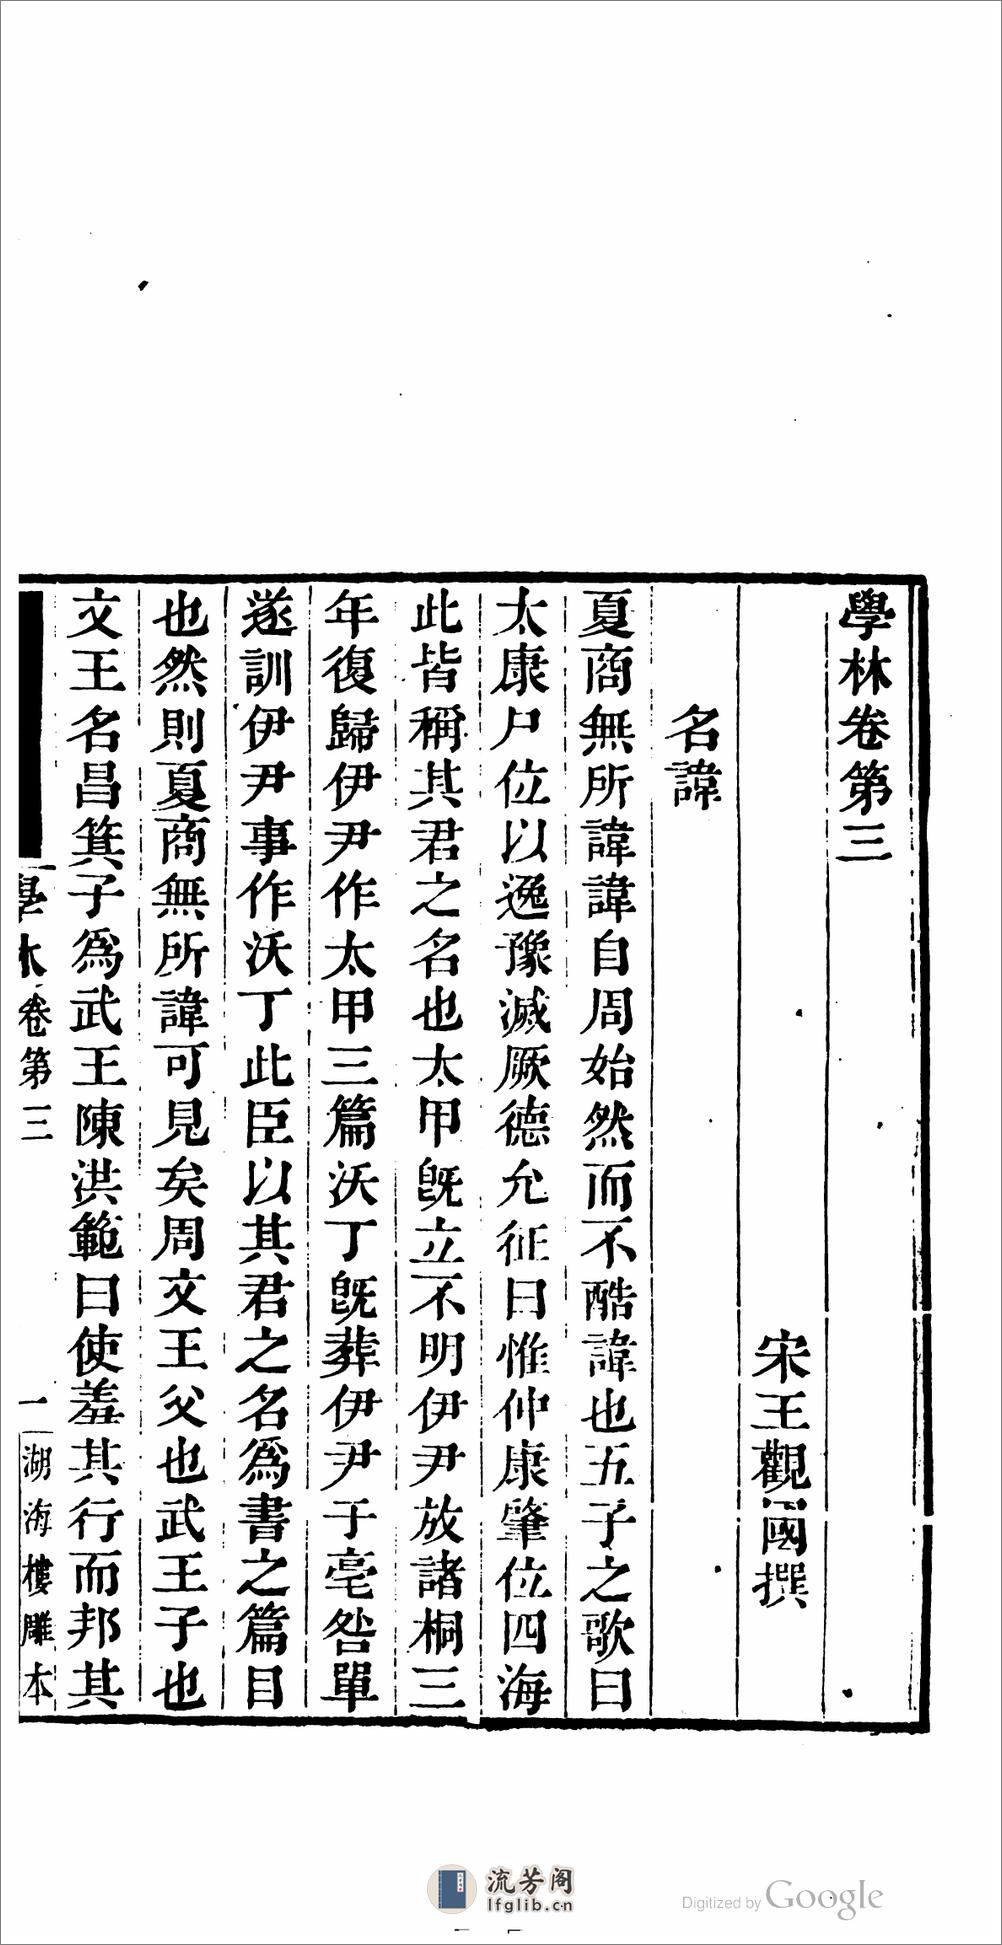 學林卷第三
宋王觀國撰
名諱
夏商無所諱諱自周始然而不酷諱也五子之歌曰
太康尸位以逸豫滅厥德允征曰惟仲康肇位四海
此皆稱其君之名也太甲旣立不明伊尹放諸桐三
年復歸伊尹作太甲三篇沃丁旣葬伊尹于亳咎單
遂訓伊尹事作沃丁此臣以其君之名爲書之篇目
也然則夏商無所諱可見矣周文王父也武王子也
文王名昌箕子爲武王陳洪範曰使羞其行而邦其
學林卷第三
一
湖海樓雕本
流芳阁
lfglib.cn
Digitized by Google